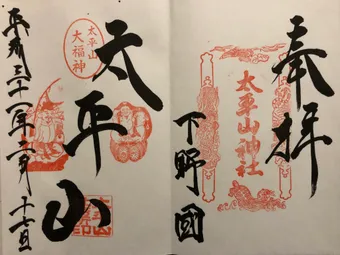 奉拝
太平山神社
下野國
太平山
大福神
太平山
平成三十一年二月十七日